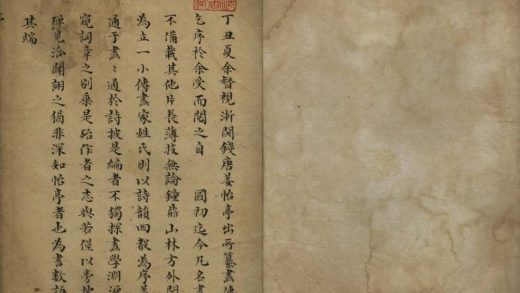 丁丑夏余督視浙閩錢唐姜怡亭出所纂畫
乞序於余受而閱之自 國初迄今凡名畫
不備載其他片長薄技無論鐘鼎山林方外閨
為立一小傳畫家姓氏則以詩韻四聲為序
通于畫〻通於詩披是編者不獨探畫學淵源
窺詞章之別乗是殆作者之志與若僅以旁搜
殫見洽聞詡之猶非深知怡亭者也為書數語
其端